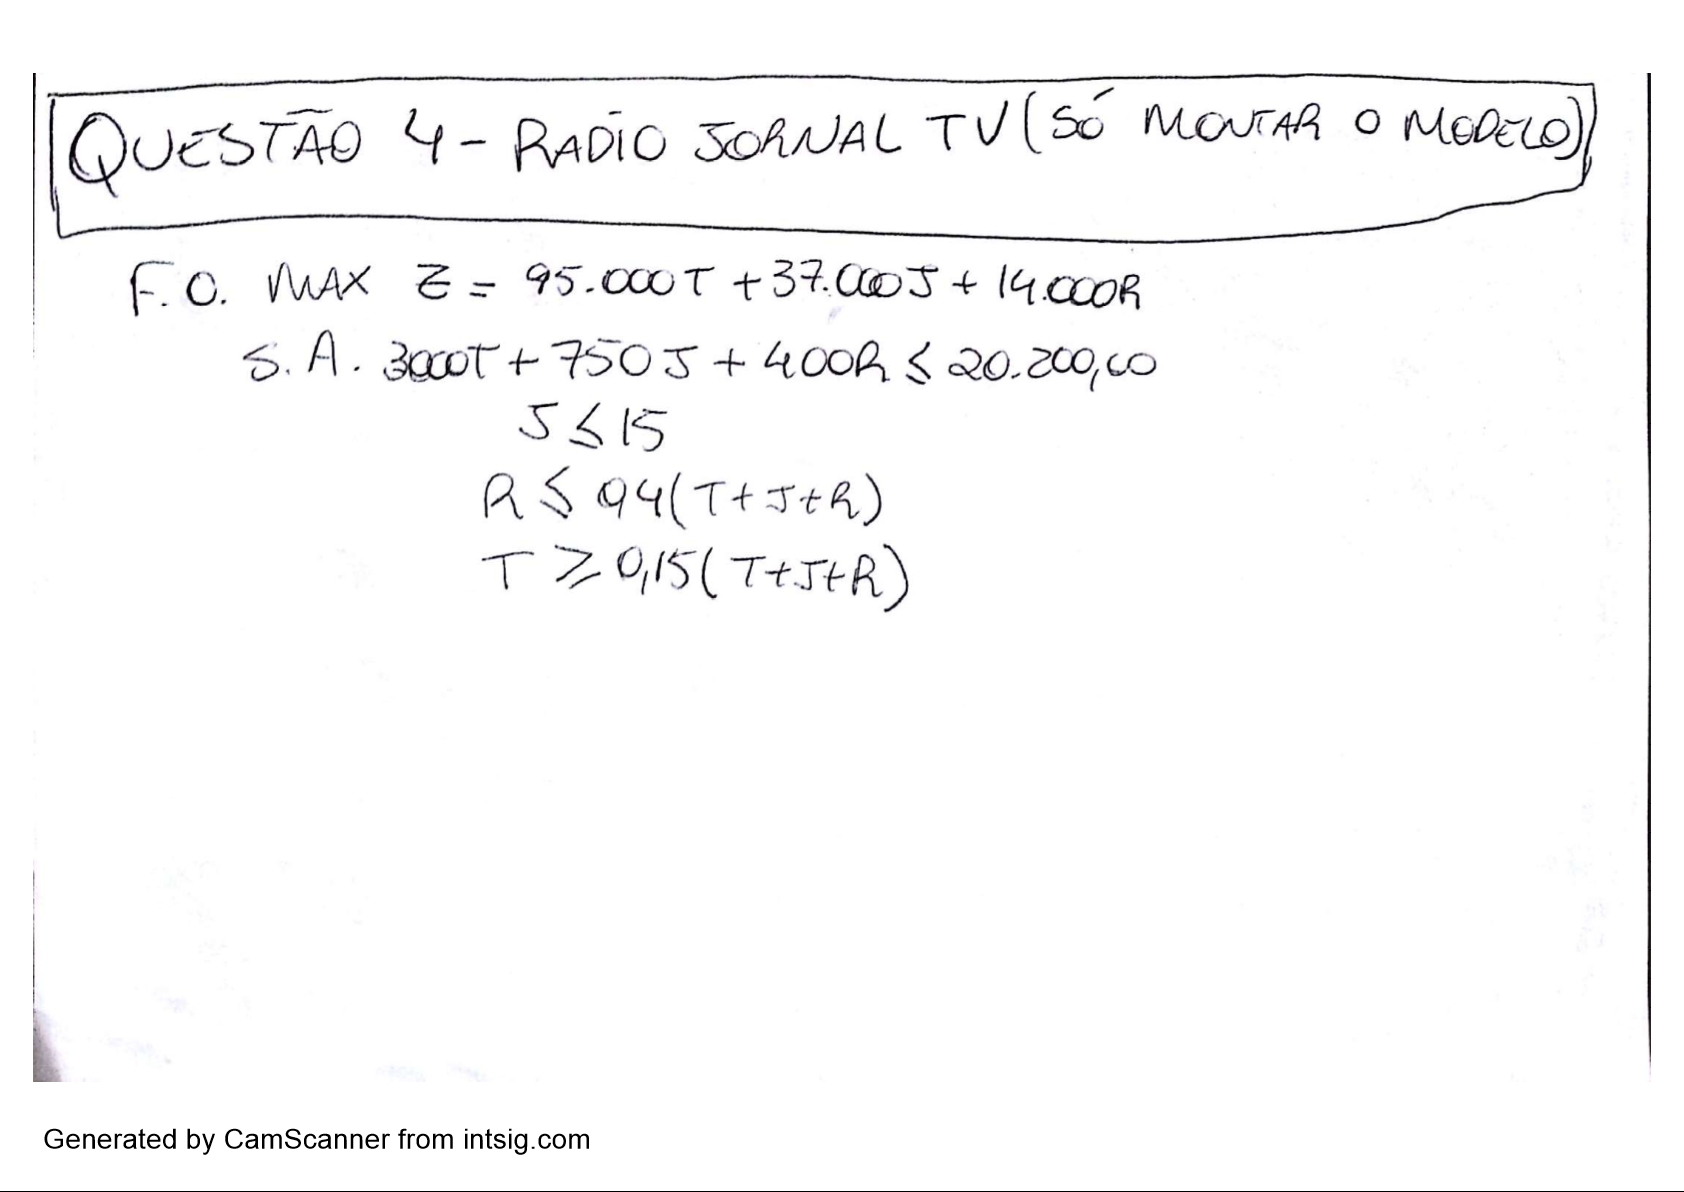 QUESTÃO 4 - RADIO JORNAL TV (SÓ MONTAR O MODELO)
F.O. MAX Z = 95.000T + 37.000J + 14.000R
S.A. 3000T + 750J + 400R ≤ 20.200,00
J ≤ 15
R ≤ 0,4(T+J+R)
T ≥ 0,15(T+J+R)
Generated by CamScanner from intsig.com